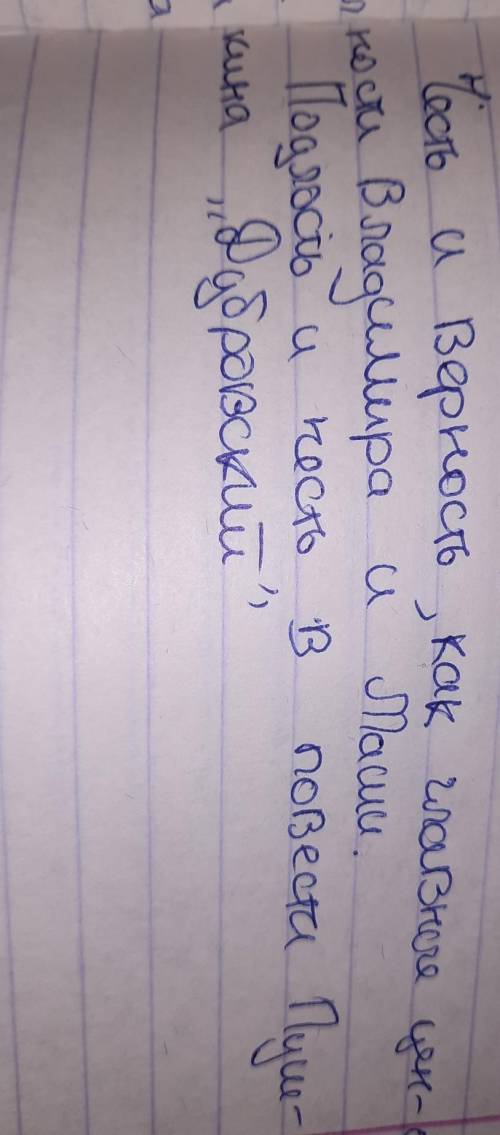 Честь и верность, как главные цен-
ности Владимира и Маши.
Подлость и честь в повести Пуш-
кина „Дубровский"